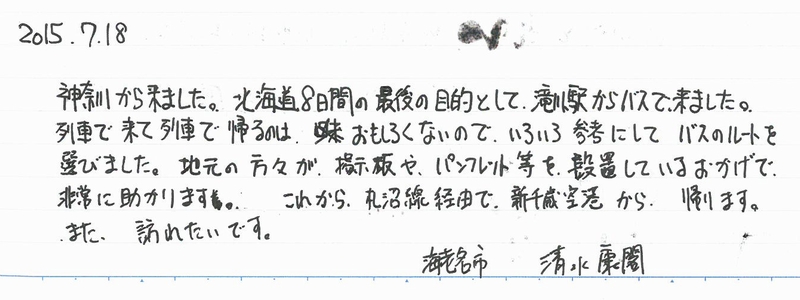 2015.7.18
神奈川から来ました。北海道8日間の最後の目的として、滝川駅からバスで来ました。
列車で来て列車で帰るのは、おもしろくないので、いろいろ参考にして バスのルートを
選びました。地元の方々が、掲示板や、パンフレット等を、設置しているおかげで、
非常に助かります。 これから、札沼線経由で、新千歳空港から 帰ります。
また、訪れたいです。
海老名市 清水